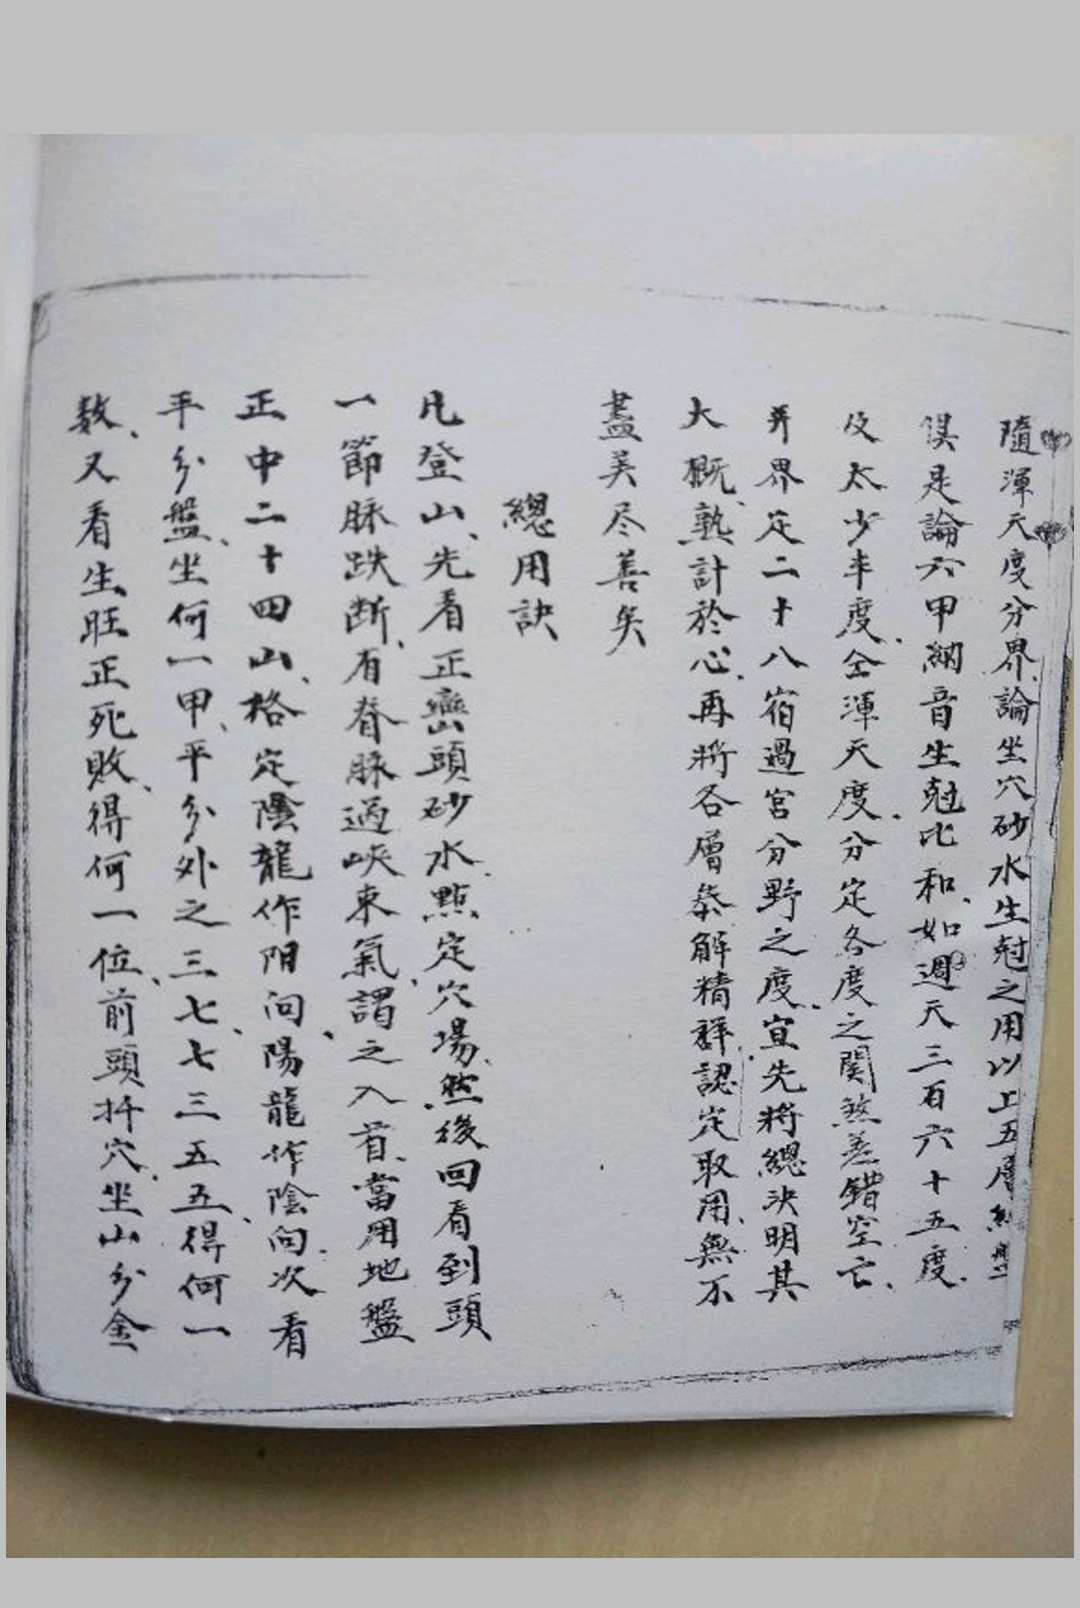 隨渾天度分界論坐穴砂水生尅之用以上五層
俱是論六甲納音生尅比和如週天三百六十五度
及太少半度全渾天度分定各度之関煞差錯空亡
并界定二十八宿過宮分野之度宜先將總決明其
大概熟計於心再將各層叅解精詳認定取用無不
盡美尽善矣
總用訣
凡登山先看正巒頭砂水點定穴場然後回看到頭
一節脉跌断有脊脉過峽東氣謂之入首當用地盤
正中二十四山格定陰龍作阴向陽龍作陰向次看
平分盤坐何一甲平分外之三七七三五五得何一
数又看生旺正死敗得何一位前頭扦穴坐山分金